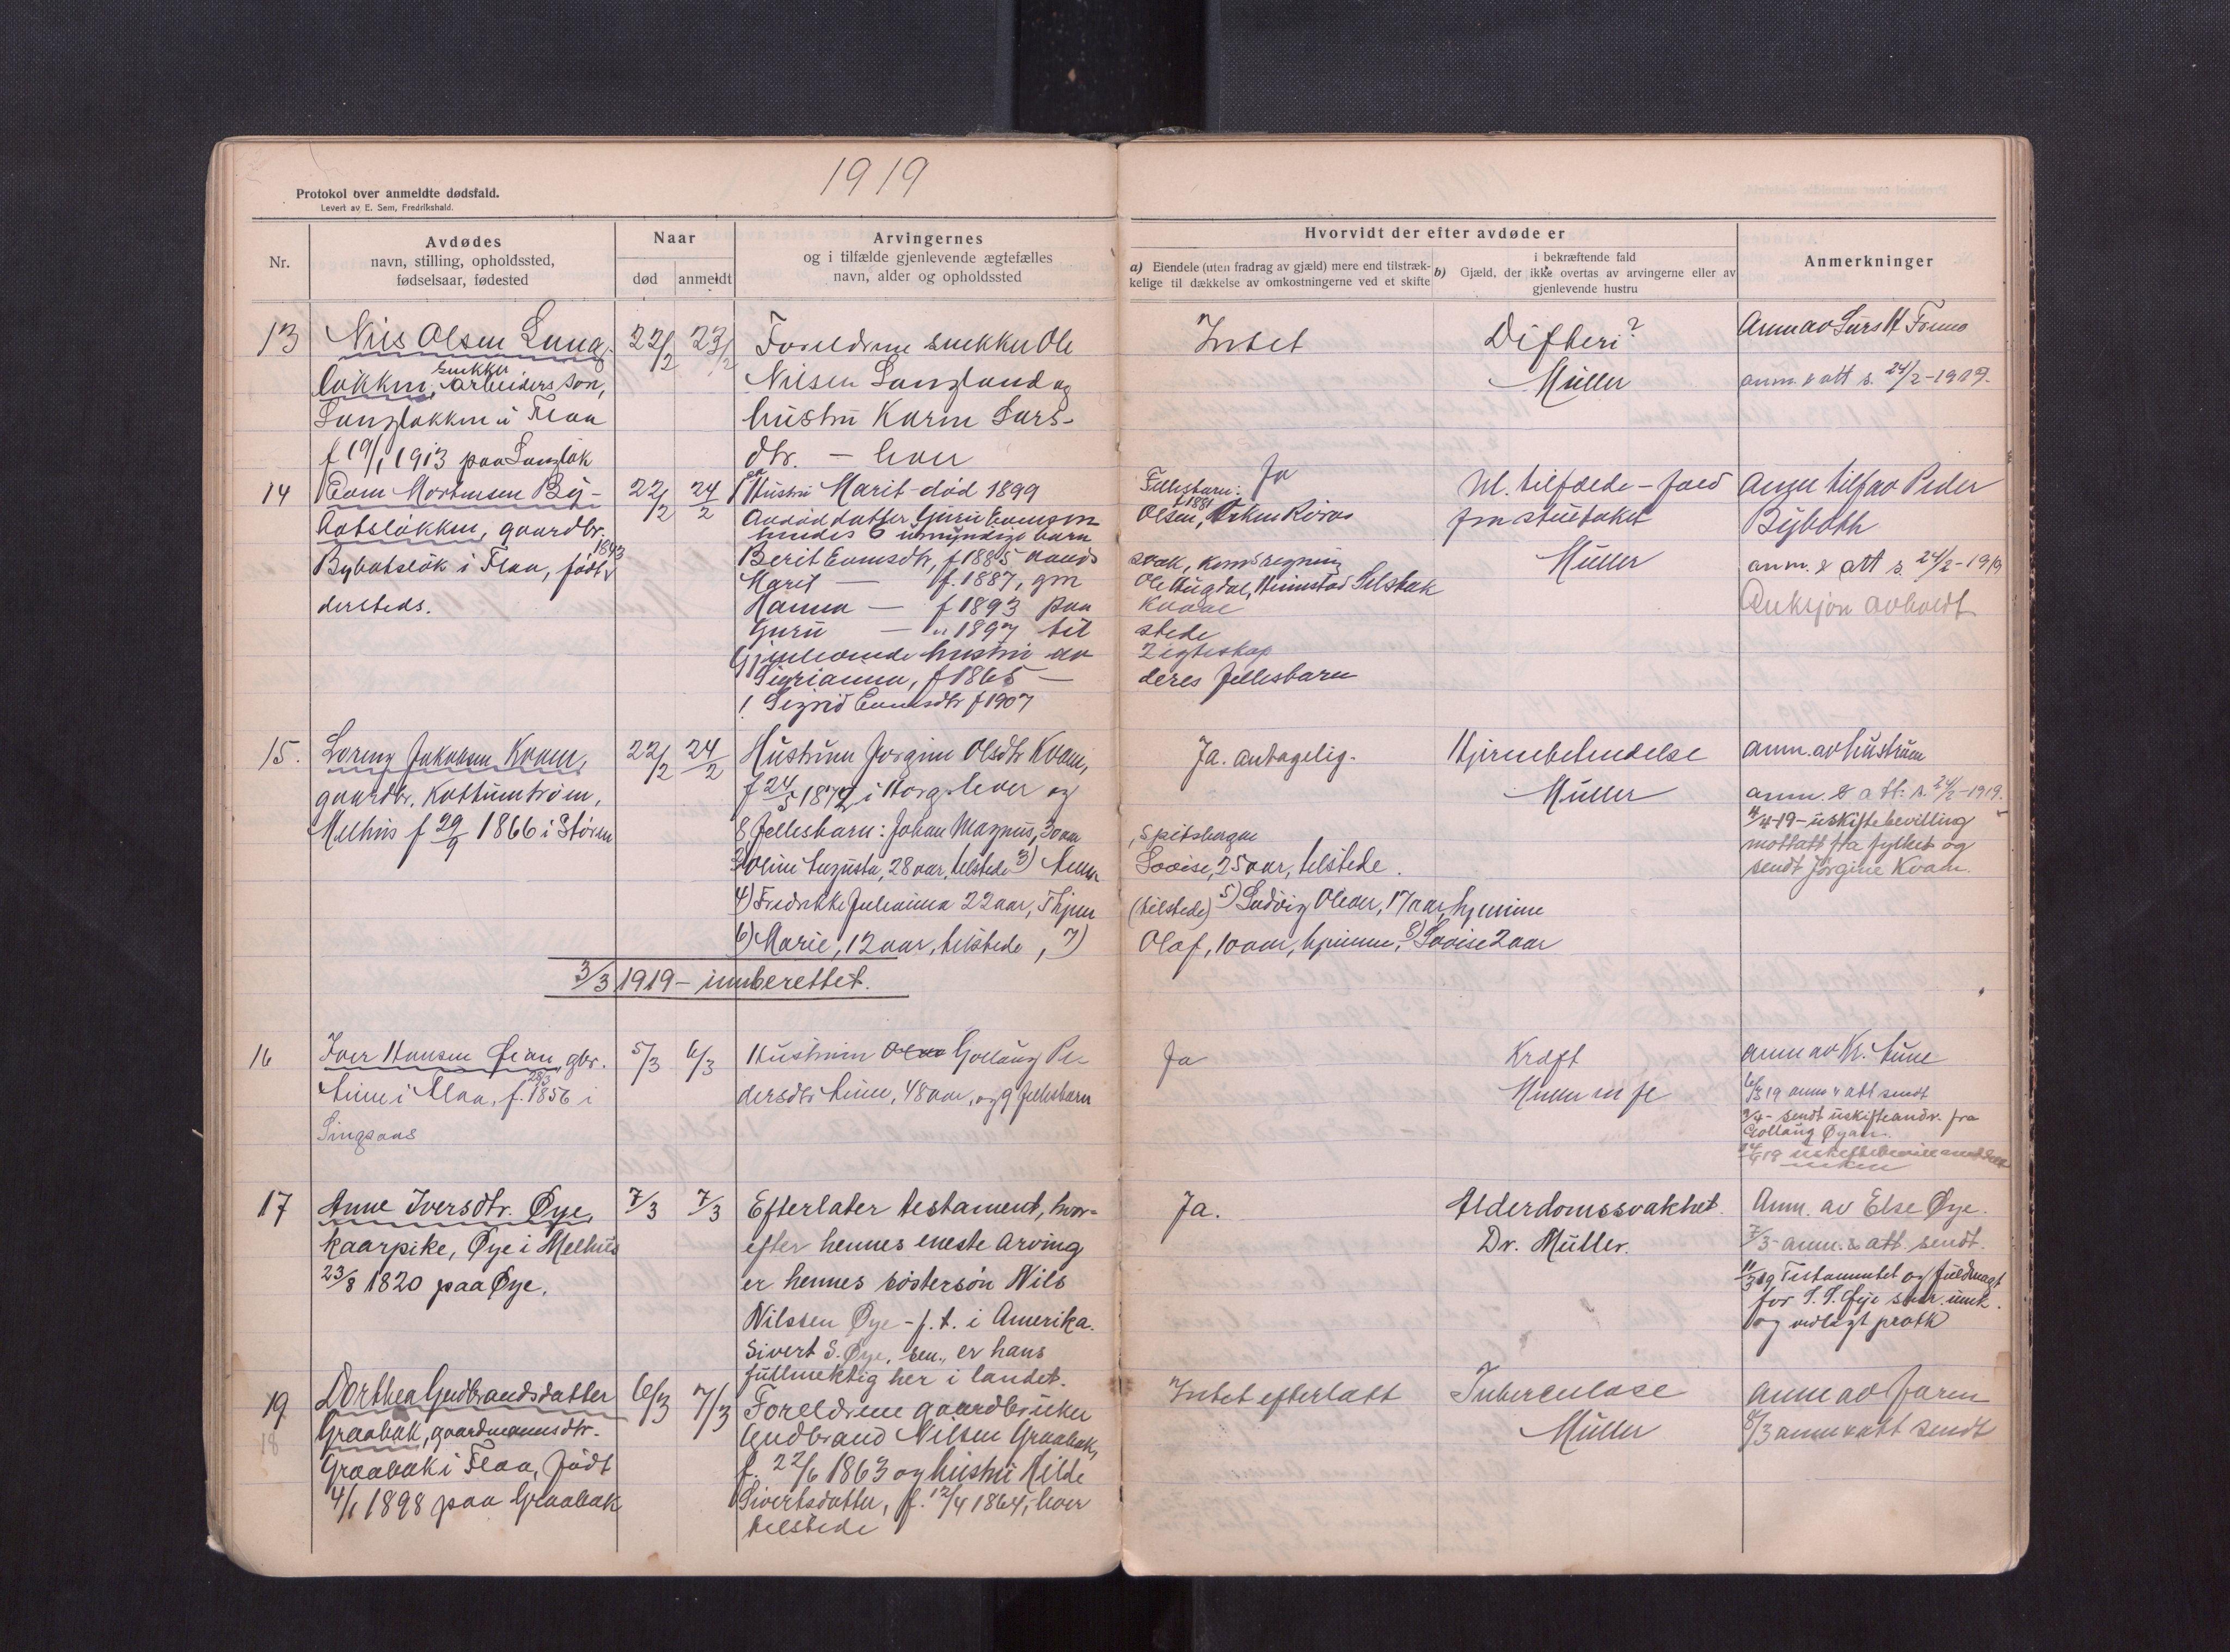 1919
Protokol over anmeldte dødsfald.
Levert av E. Sem, Fredrikshald.
Nr.
Avdødes
navn, stilling, opholdssted,
fødselsaar, fødested
Naar
død
anmeldt
Arvingernes
og i tilfælde gjenlevende ægtefælles
navn, alder og opholdssted
Hvorvidt der efter avdøde er
a) Eiendele (uten fradrag av gjæld) mere end tilstræk-
kelige til dækkelse av omkostningerne ved et skifte
i bekræftende fald
b) Gjæld, der ikke overtas av arvingerne eller av
gjenlevende hustru
Anmerkninger
13
Nils Olsen Lang
løkken, snekker arbeiders søn,
Langløkken i Flaa
f 19/1 1913 paa Langløk
22/2
23/2
Foreldrene snekker Ole
Nilsen Langland og
hustru Karen Lars-
dtr. – lever
Intet
Difteri?
Müller
Anm av Lars H Formo
anm. & att s. 24/2-1919.
14
Even Mortensen By-
botsløkken, gaardbr.
Bybotsløk i Flaa, født 1843
dersteds.
22/2
24/2
Hustru Marit – død 1899
Avdød datter Guru Evensen
hendes 6 umyndige barn
Berit Evensdtr, f 1885 aands
Marit — f. 1887, gm
Hanna — f 1893 paa
Guru — " 1897 til
Gjenlevende hustru av
Sigrianna, f 1865 –
1. Sigrid Evensdtr f 1907
Fellesbarn: Ja
Olsen, f 1881 Røros
svak, komsregning
Ole Hugdal, Heimstad Selsbak
Kvaal
stede
2 egteskap
deres fellesbarn
Ul. tilfælde – fald
fra stuetaket
Müller
Anm tilf av Peder
Byboth
anm. & att s. 24/2-1919
Auksjon avholdt
15.
Lorens Jakobsen Kvam,
gaardbr. Kattumtrøen,
Melhus f 29/9 1866 i Støren
22/2
24/2
Hustruen Jørgine Olsdtr Kvam,
f 24/5 1872 i Horg lever og
8 fellesbarn: Johan Magnus, 30 aar
2) Oline Augusta, 28 aar, telstede 3) Anna
4) Fredrikke Julianna 22 aar, Thjem
6) Marie, 12 aar, telstede, 7)
Ja. antagelig.
, Spitsbergen
Lovise, 25 aar, telstede.
(telstede) 5) Ludvig Oliver, 17 aar, hjemme
Olaf, 10 aar, hjemme, 8) Lovise 2 aar
Hjernebetendelse
Müller
anm. av hustruen
anm. & att: s. 24/2-1919.
4/4-19 – uskiftebevilling
mottatt fra fylket og
sendt Jørgine Kvam.
3/3 1919 – innberettet.
16
Iver Hansen Øian, gbr.
Lume i Flaa, f. 28/3 1856 i
Singsaas
5/3
6/3
Hustruen Gollaug Pe-
dersdtr Lume, 48 aar, og 9 fellesbarn
Ja
Kræft
Müller m fl
anm av Kr. Lume
6/3 19 anm & att sendt
9/4 – sendt uskifteandr. fra
Gollaug Øyan.
17
Anne Iversdtr. Øye,
kaarpike, Øye i Melhus
23/8 1820 paa Øye.
7/3
7/3
Efterlater testament, hvor-
efter hennes eneste arving
er hennes søstersøn Nils
Nilssen Øye – f.t. i Amerika.
Sivert S. Øye, sen., er hans
fullmektig her i landet.
Ja.
Alderdomssvakhet.
Dr. Müller.
Anm. av Else Øye.
7/3 – anm. & att. sendt.
11/3 19 Testamentet og fuldmagt
for S. S. Øye
og vedlagt protk
19
18
Dorthea Gudbrandsdatter
Graabak, gaardmannsdtr.
Graabak i Flaa, født
4/1 1898 paa Graabak
6/3
7/3
Foreldrene gaardbruker
Gudbrand Nilsen Graabak,
f. 22/6 1863 og hustru Hilde
Sivertsdatter, f. 12/4 1864, – lever
telstede
Intet efterlatt
Tuberculose
Müller
anm av faren
8/3 anm & att sendt